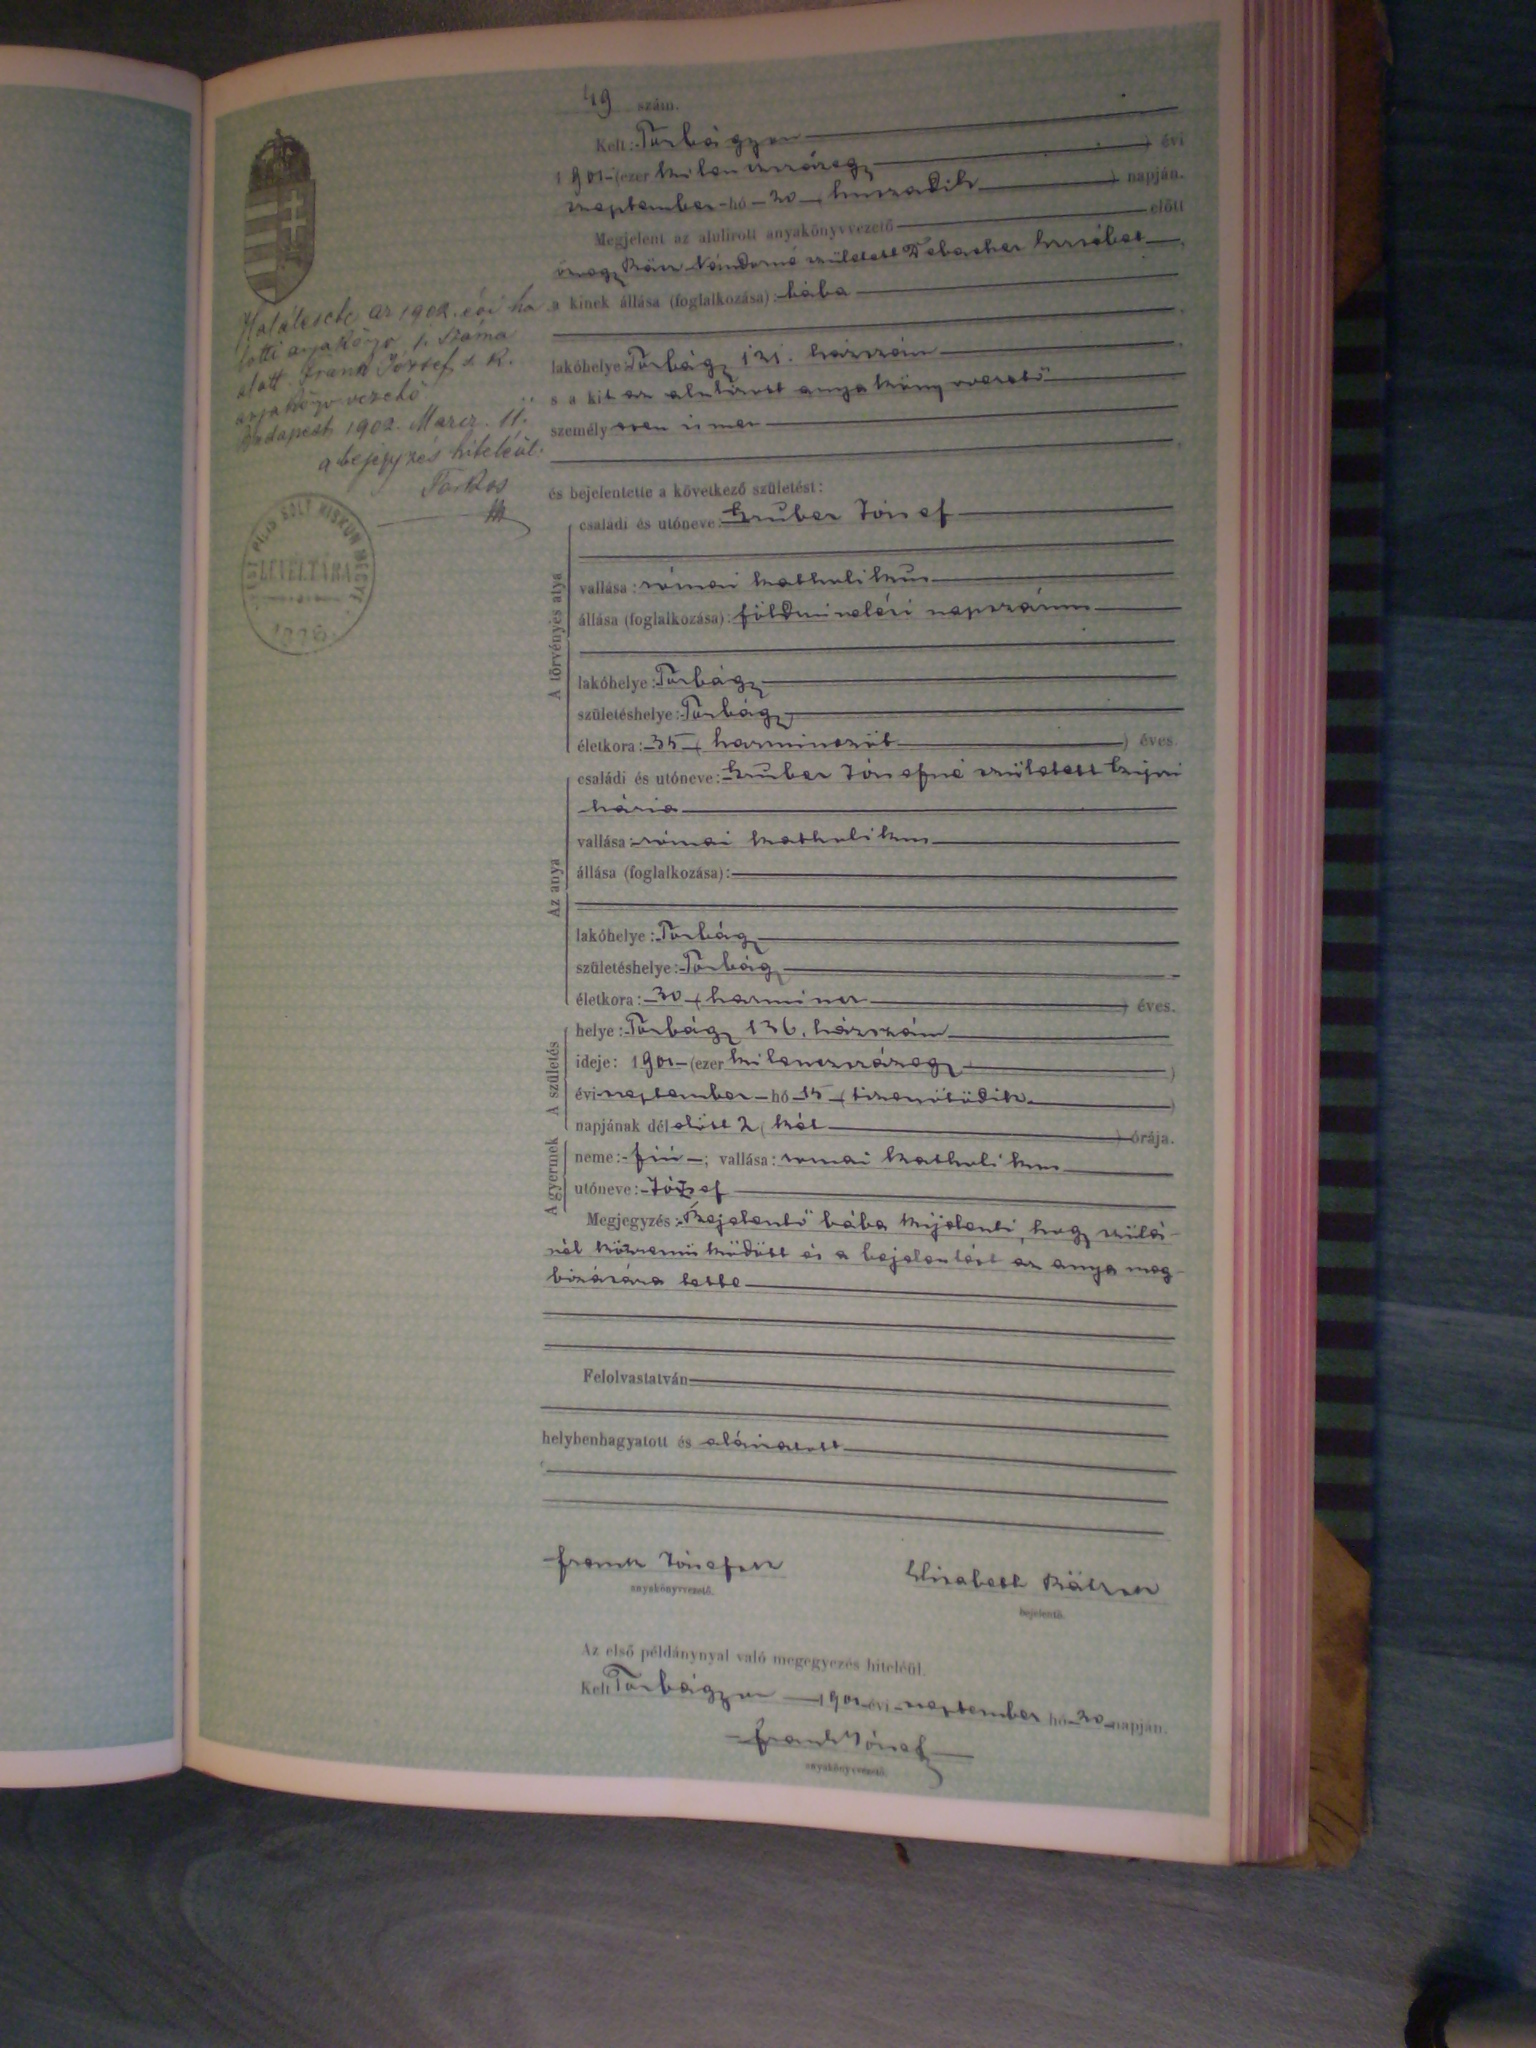 49 szám.
Kelt: Torbágyon
1901 (ezer kilenczszázegy) évi
szeptember hó 20 (huszadik) napján.
Megjelent az alulirott anyakönyvvezető előtt
özvegy Rácz Nándorné született
a kinek állása (foglalkozása): bába
lakóhelye: Torbágy 121. házszám
s a kit az alulirott anyakönyvvezető
személyesen ismer
és bejelentette a következő születést:
A törvényes atya
családi és utóneve: Gruber József
vallása: római katholikus
állása (foglalkozása): földmivelési napszámos
lakóhelye: Torbágy
születéshelye: Torbágy
életkora: 35 (harminczöt) éves.
Az anya
családi és utóneve: Gruber Józsefné született
Mária
vallása: római katholikus
állása (foglalkozása):
lakóhelye: Torbágy
születéshelye: Torbágy
életkora: 30 (harmincz) éves.
A születés
helye: Torbágy 136. házszám
ideje: 1901 (ezer kilenczszázegy)
évi szeptember hó 15 (tizenötödik)
napjának délelőtt 2 (két) órája.
A gyermek
neme: fiú; vallása: római katholikus
utóneve: József
Megjegyzés: Bejelentő bába kijelenti, hogy szülés-
nél közremüködött és a bejelentést az anya meg-
bizására tette
Felolvastatván
helybenhagyatott és aláiratott
Frank József
anyakönyvvezető.
Elisabeth
bejelentő.
Az első példánynyal való megegyezés hiteléül.
Kelt Torbágyon 1901 évi szeptember hó 20 napján.
Frank József
anyakönyvvezető.
Halálesete az 1902. évi ha
lotti anyakönyv 1. száma
alatt. Frank József s. k.
anyakönyvvezető
Budapest 1902. Marcz. 11.
a bejegyzés hiteléül.
Farkas
PEST PILIS SOLT KISKUN MEGYE
LEVÉLTÁRA